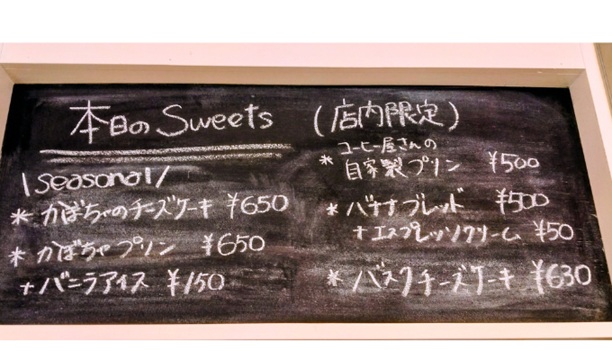 本日のSweets (店内限定)
\seasonal/
* かぼちゃのチーズケーキ ¥650
* かぼちゃプリン ¥650
+バニラアイス ¥150
コーヒー屋さんの
* 自家製プリン ¥500
* バナナブレッド ¥500
+エスプレッソクリーム ¥50
* バスクチーズケーキ ¥630